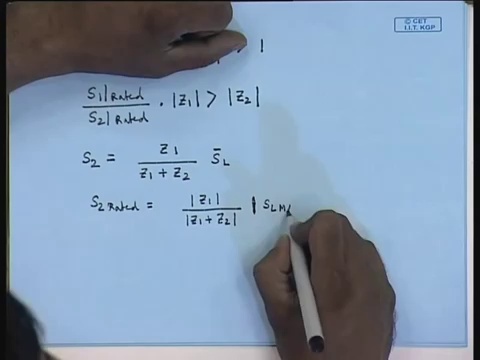 © CET
I.I.T. KGP
1
S₁|Rated / S₂|Rated . |Z₁| > |Z₂|
S₂ = Z₁ / (Z₁ + Z₂) S̄_L
S₂ Rated = |Z₁| / |Z₁ + Z₂| | S_L M